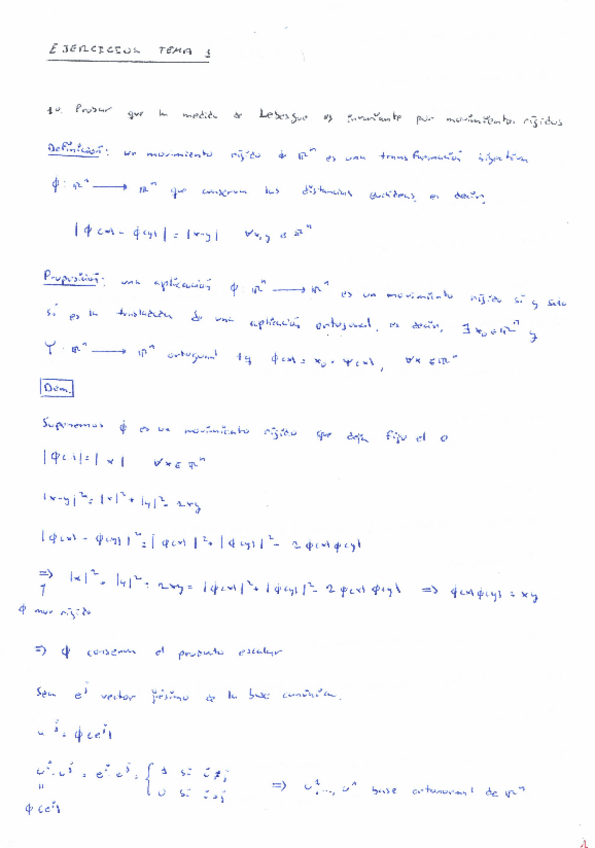 EJERCICIOS TEMA 1
1º. Probar que la medida de Lebesgue es invariante por movimientos rígidos
Definición: un movimiento rígido ϕ ℝⁿ es una transformación biyectiva
ϕ: ℝⁿ ⟶ ℝⁿ que conserva las distancias euclídeas, es decir,
|ϕ(x) - ϕ(y)| = |x-y| ∀x,y ∈ ℝⁿ
Proposición: una aplicación ϕ: ℝⁿ ⟶ ℝⁿ es un movimiento rígido si y solo
si es la traslación de una aplicación ortogonal, es decir, ∃ x₀ ∈ ℝⁿ y
Ψ: ℝⁿ ⟶ ℝⁿ ortogonal tq ϕ(x) = x₀ + Ψ(x), ∀x ∈ ℝⁿ
Dem.
Suponemos ϕ es un movimiento rígido que deja fijo el 0
|ϕ(x)| = |x| ∀x ∈ ℝⁿ
|x-y|² = |x|² + |y|² - 2xy
|ϕ(x) - ϕ(y)|² = |ϕ(x)|² + |ϕ(y)|² - 2ϕ(x)ϕ(y)
⇒ |x|² + |y|² - 2xy = |ϕ(x)|² + |ϕ(y)|² - 2ϕ(x)ϕ(y) ⇒ ϕ(x)ϕ(y) = xy
↑
ϕ mov rígido
⇒ ϕ conserva el producto escalar
Sea eʲ vector jésimo de la base canónica.
uʲ = ϕ(eʲ)
uⁱ·uʲ = eⁱ·eʲ = { 1 si i≠j
0 si i=j ⇒ u¹,..., uⁿ base ortonormal de ℝⁿ
"
ϕ(eⁱ)
1